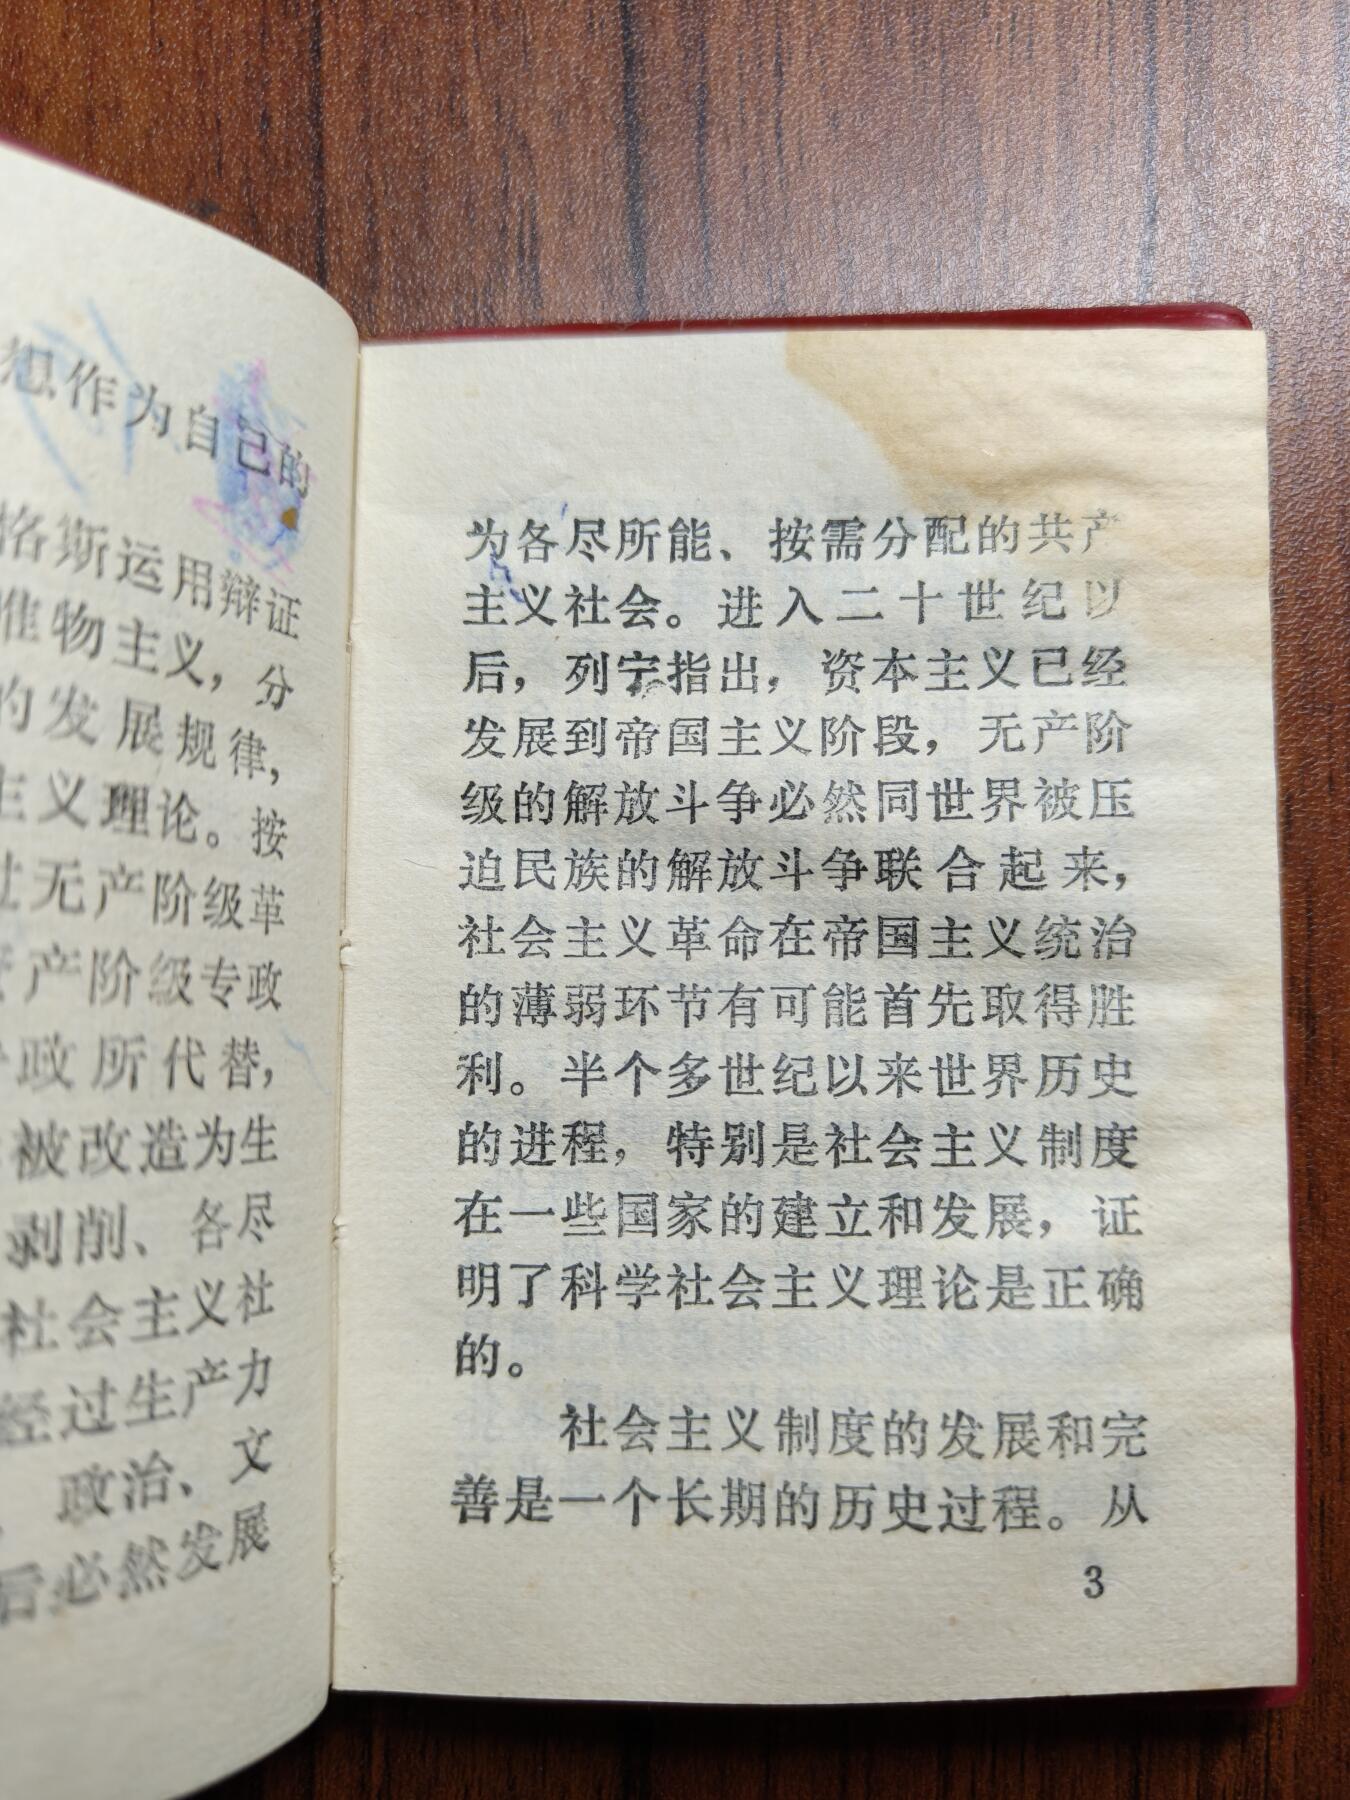 想作为自己的
格斯运用辩证
唯物主义，分
的发展规律，
主义理论。按
过无产阶级革
产阶级专政
政所代替，
被改造为生
剥削、各尽
社会主义社
经过生产力
政治、文
后必然发展
为各尽所能、按需分配的共产
主义社会。进入二十世纪以
后，列宁指出，资本主义已经
发展到帝国主义阶段，无产阶
级的解放斗争必然同世界被压
迫民族的解放斗争联合起来，
社会主义革命在帝国主义统治
的薄弱环节有可能首先取得胜
利。半个多世纪以来世界历史
的进程，特别是社会主义制度
在一些国家的建立和发展，证
明了科学社会主义理论是正确
的。
社会主义制度的发展和完
善是一个长期的历史过程。从
3